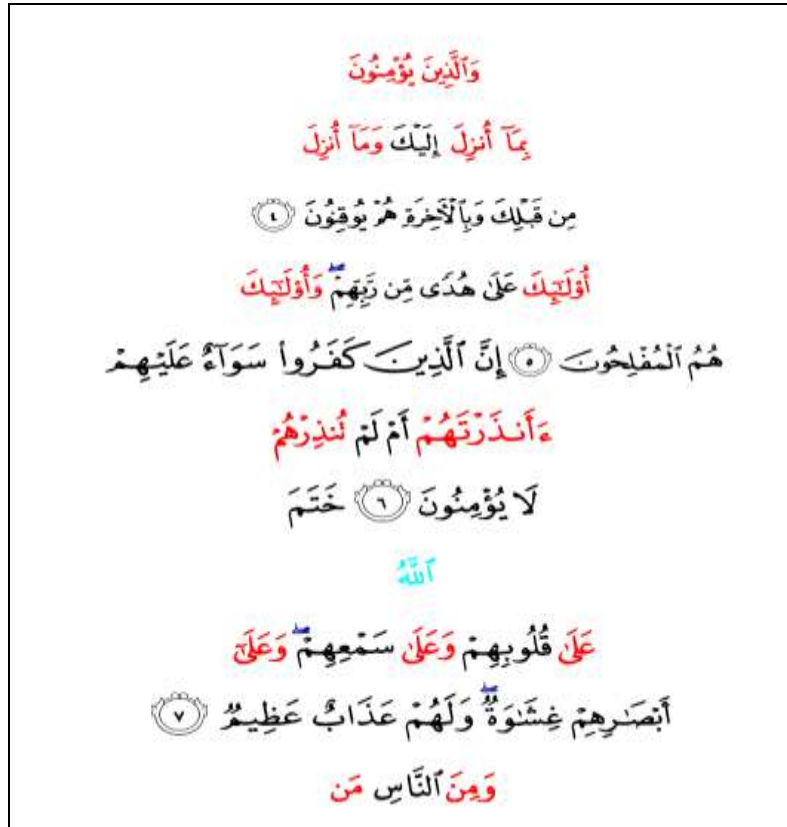 وَٱلَّذِينَ يُؤْمِنُونَ
بِمَآ أُنزِلَ إِلَيْكَ وَمَآ أُنزِلَ
مِن قَبْلِكَ وَبِٱلْأَخِرَةِ هُمْ يُوقِنُونَ ٤
أُو۟لَـٰٓئِكَ عَلَىٰ هُدًى مِّن رَّبِّهِمْ ۖ وَأُو۟لَـٰٓئِكَ
هُمُ ٱلْمُفْلِحُونَ ٥ إِنَّ ٱلَّذِينَ كَفَرُوا۟ سَوَآءٌ عَلَيْهِمْ
ءَأَنذَرْتَهُمْ أَمْ لَمْ تُنذِرْهُمْ
لَا يُؤْمِنُونَ ٦ خَتَمَ
ٱللَّهُ
عَلَىٰ قُلُوبِهِمْ وَعَلَىٰ سَمْعِهِمْ ۖ وَعَلَىٰٓ
أَبْصَـٰرِهِمْ غِشَـٰوَةٌ ۖ وَلَهُمْ عَذَابٌ عَظِيمٌ ٧
وَمِنَ ٱلنَّاسِ مَن